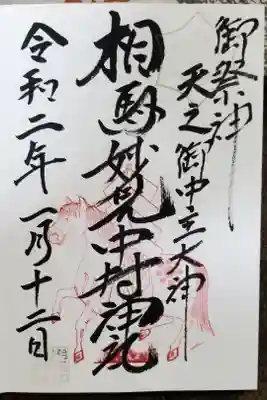 御祭神
天之御中主大神
相馬妙見中村神社
令和二年一月十二日